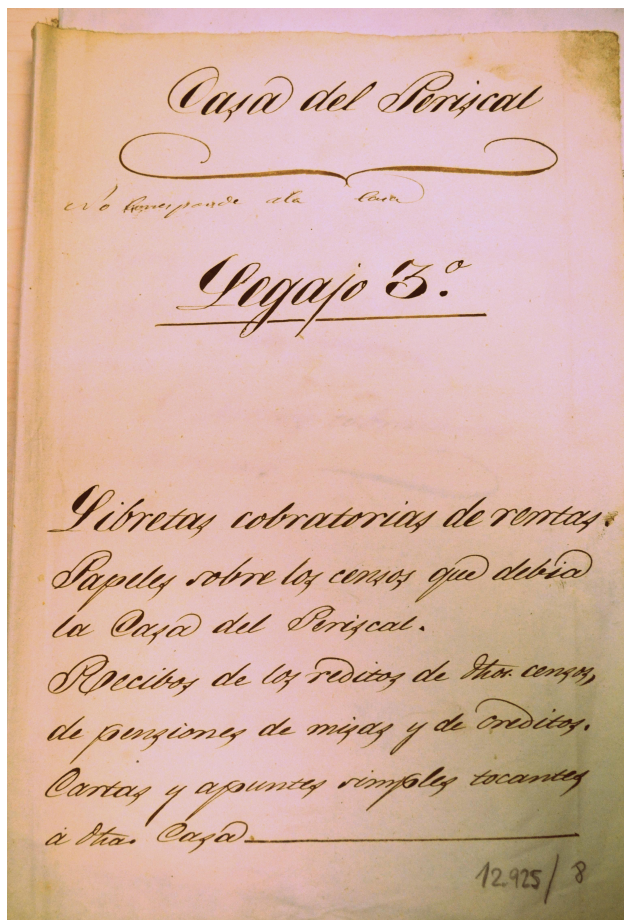 Casa del Periscal
No corresponde a la Casa
Legajo 3.º
Libretas cobratorias de rentas.
Papeles sobre los censos que debia
la Casa del Periscal.
Recibos de los reditos de dhos. censos,
de pensiones de misas y de creditos.
Cartas y apuntes simples tocantes
a dha. Casa
12.925/8